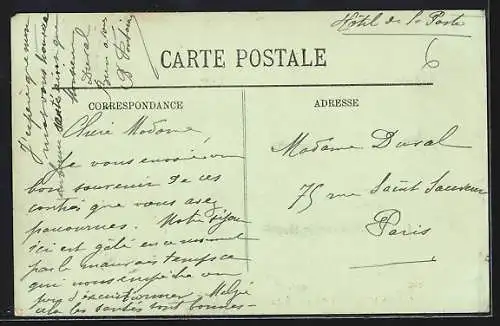 Hôtel de la Poste
6
CARTE POSTALE
CORRESPONDANCE
ADRESSE
Chère Madame,
Je vous envoie un
bon souvenir de ces
contrées que vous avez
parcourues. Notre séjour
ici est gâté en ce moment
par le mauvais temps ce
qui nous empêche un
peu d'excursionner. Malgré
cela les santés sont bonnes
J'espère que mon
mot vous trouvera
de même ainsi que
Monsieur
Duval
Bien à vous
Madame Duval
75 rue Saint Sauveur
Paris